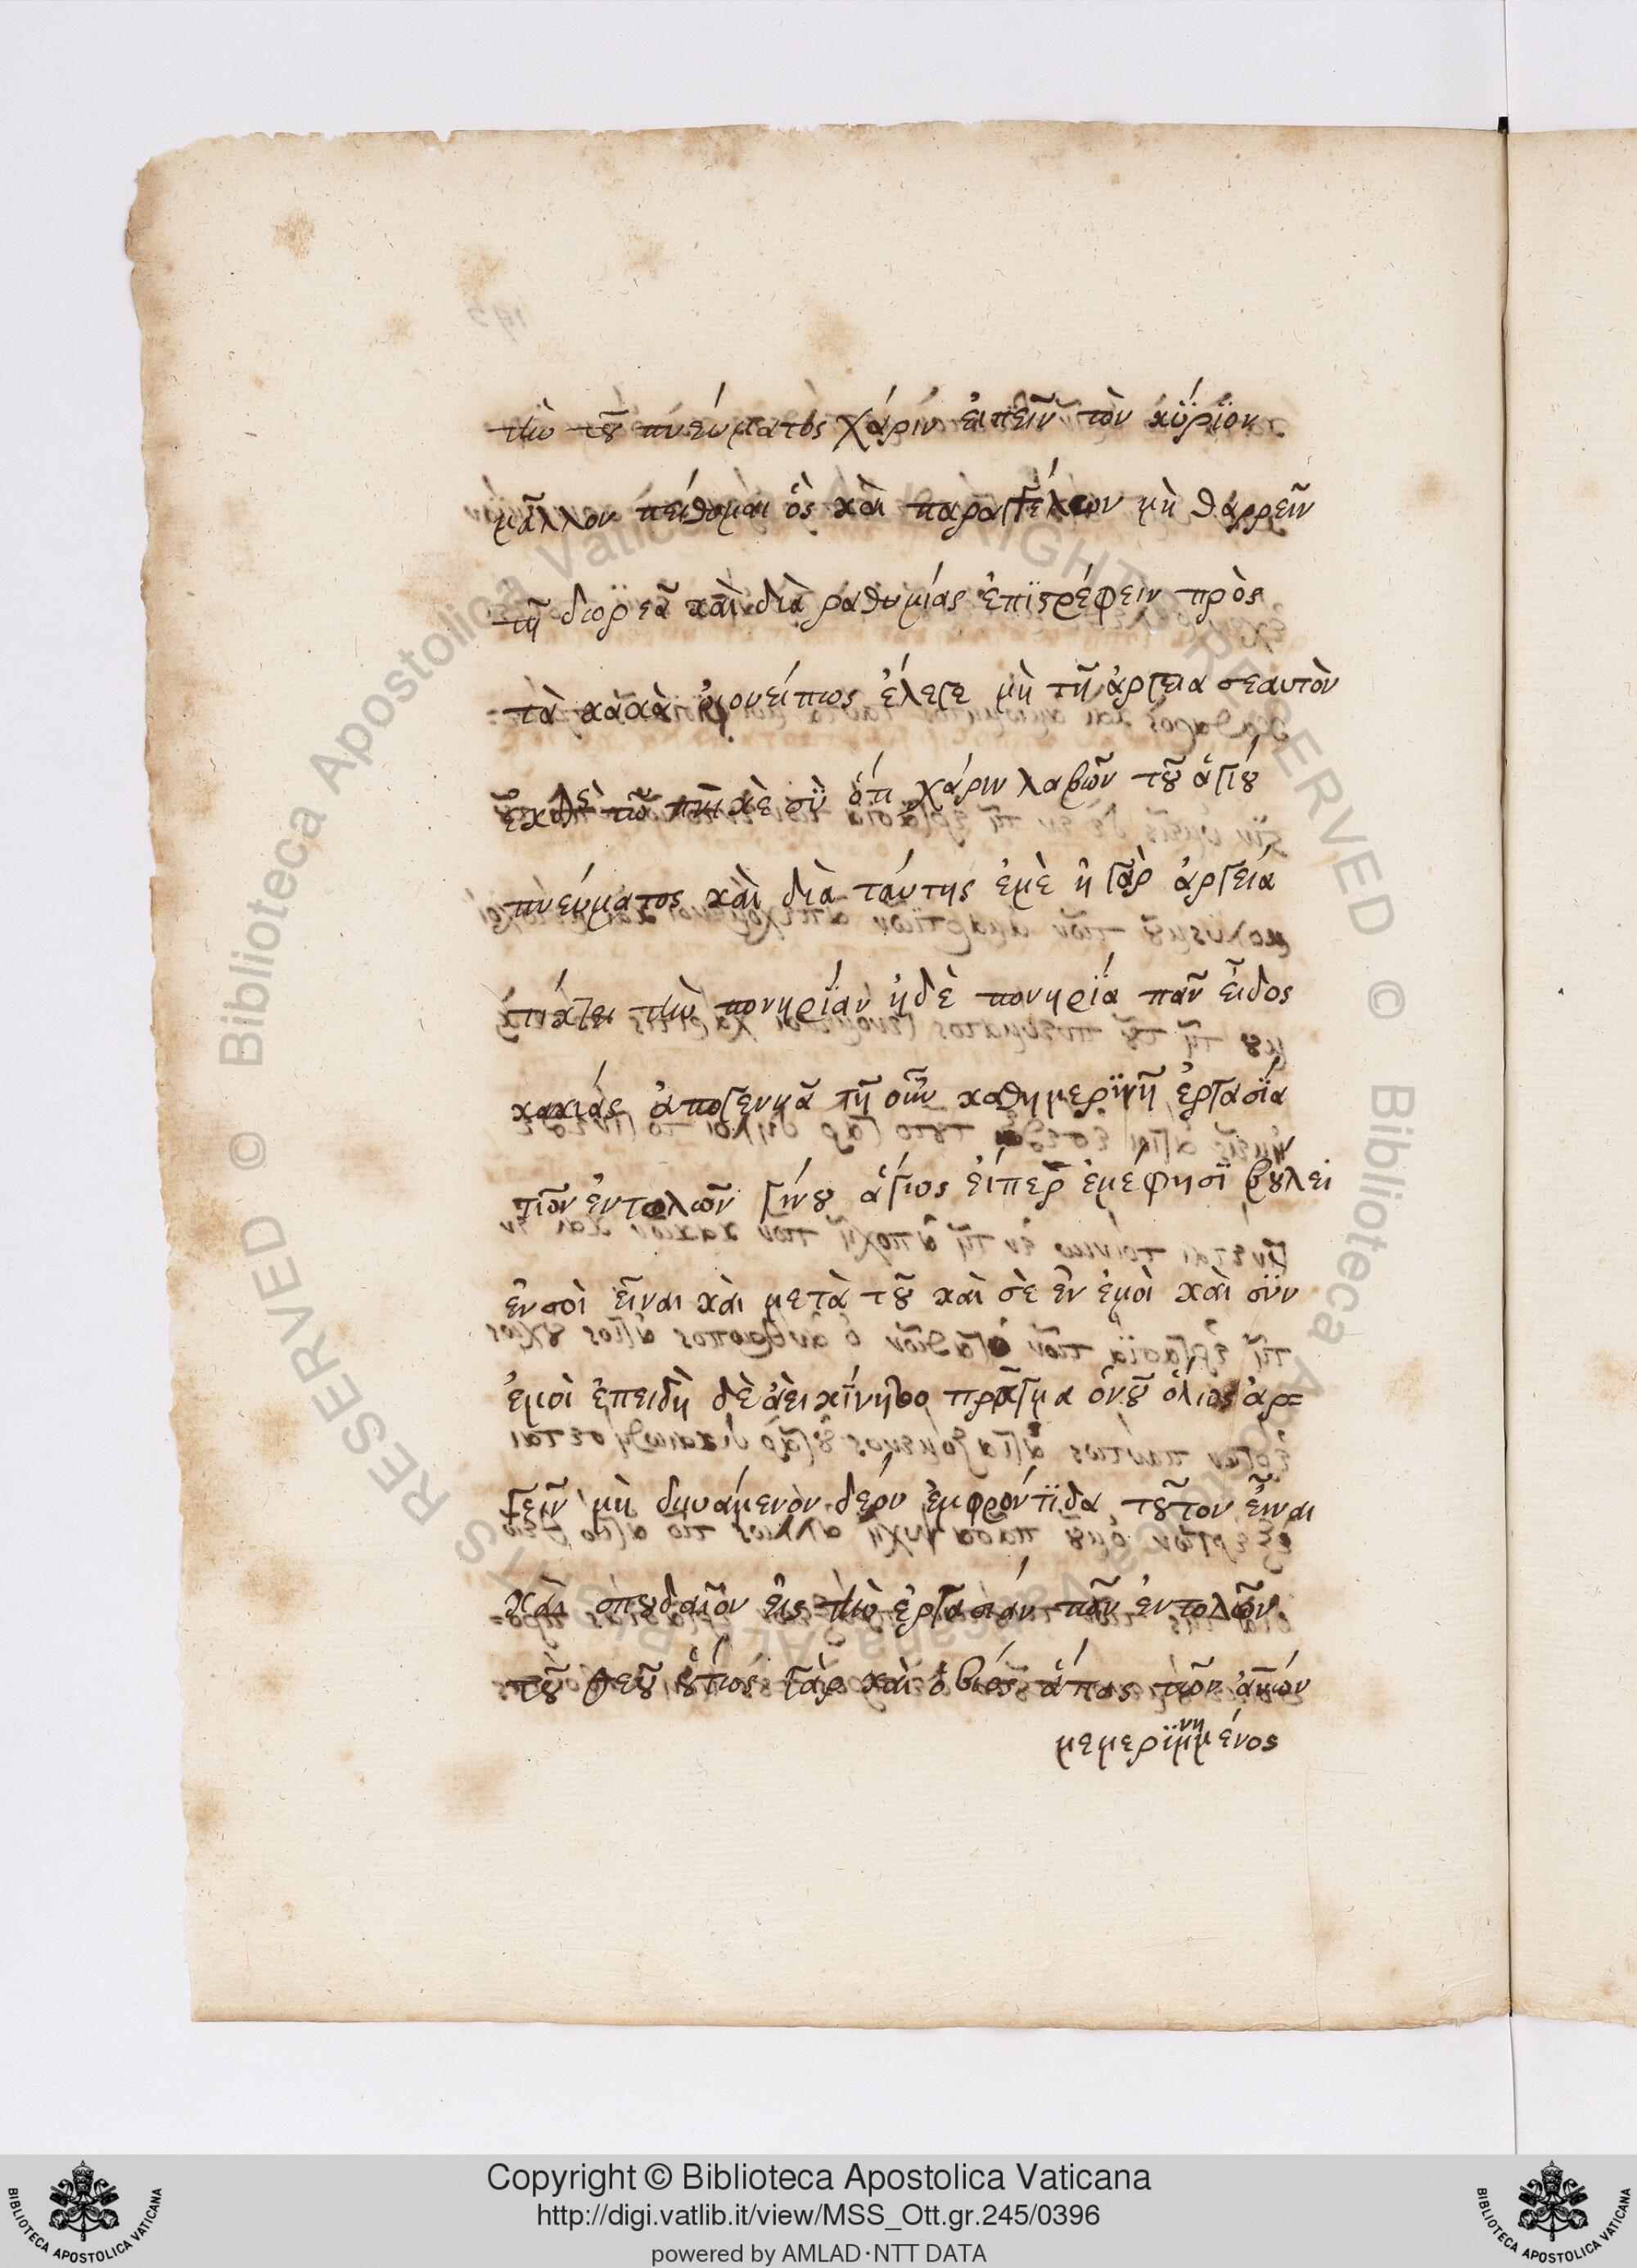 τὴν τοῦ πνεύματος χάριν εἰπεῖν τὸν κύριον
μᾶλλον πείθομαι ὃς καὶ παραγγέλων μὴ θαρρεῖν
τῇ δωρεᾷ καὶ διὰ ραθυμίας ἐπιστρέφειν πρὸς
τὰ κακὰ οἱονείπως ἔλεγε μὴ τῇ ἀργεία σεαυτὸν
σὺ ὅτι χάριν λαβῶν τοῦ ἁγίου
πνεύματος καὶ διὰ ταύτης ἐμὲ ἡ γὰρ ἀργεία
τίκτει τὴν πονηρίαν ἡδὲ πονηρία πᾶν εἶδος
κακίας ἀπογεννᾶ τῇ οὖν καθημερινῇ ἐργασία
τῶν ἐντολῶν γίνου ἅγιος εἴπερ ἐμέ φησι βούλει
ἐν σοὶ εἶναι καὶ μετὰ τοῦ καὶ σὲ ἐν ἐμοὶ καὶ σὺν
ἐμοὶ ἐπειδὴ δὲ ἀεικίνητο πρᾶγμα ὁ νοῦ ὅλως ἀρ=
γεῖν μὴ δυνάμενον δέον ἐμφρόντιδα τοῦτον εἶναι
καὶ σπουδαῖον εἰς τὴν ἐργασίαν τῶν ἐντολῶν
τοῦ θεοῦ οὕτως γὰρ καὶ ὁ βιός ἅπας τῶν
μεμεριμνημένος
Copyright © Biblioteca Apostolica Vaticana
http://digi.vatlib.it/view/MSS_Ott.gr.245/0396
powered by AMLAD·NTT DATA
BIBLIOTECA APOSTOLICA VATICANA
BIBLIOTECA APOSTOLICA VATICANA